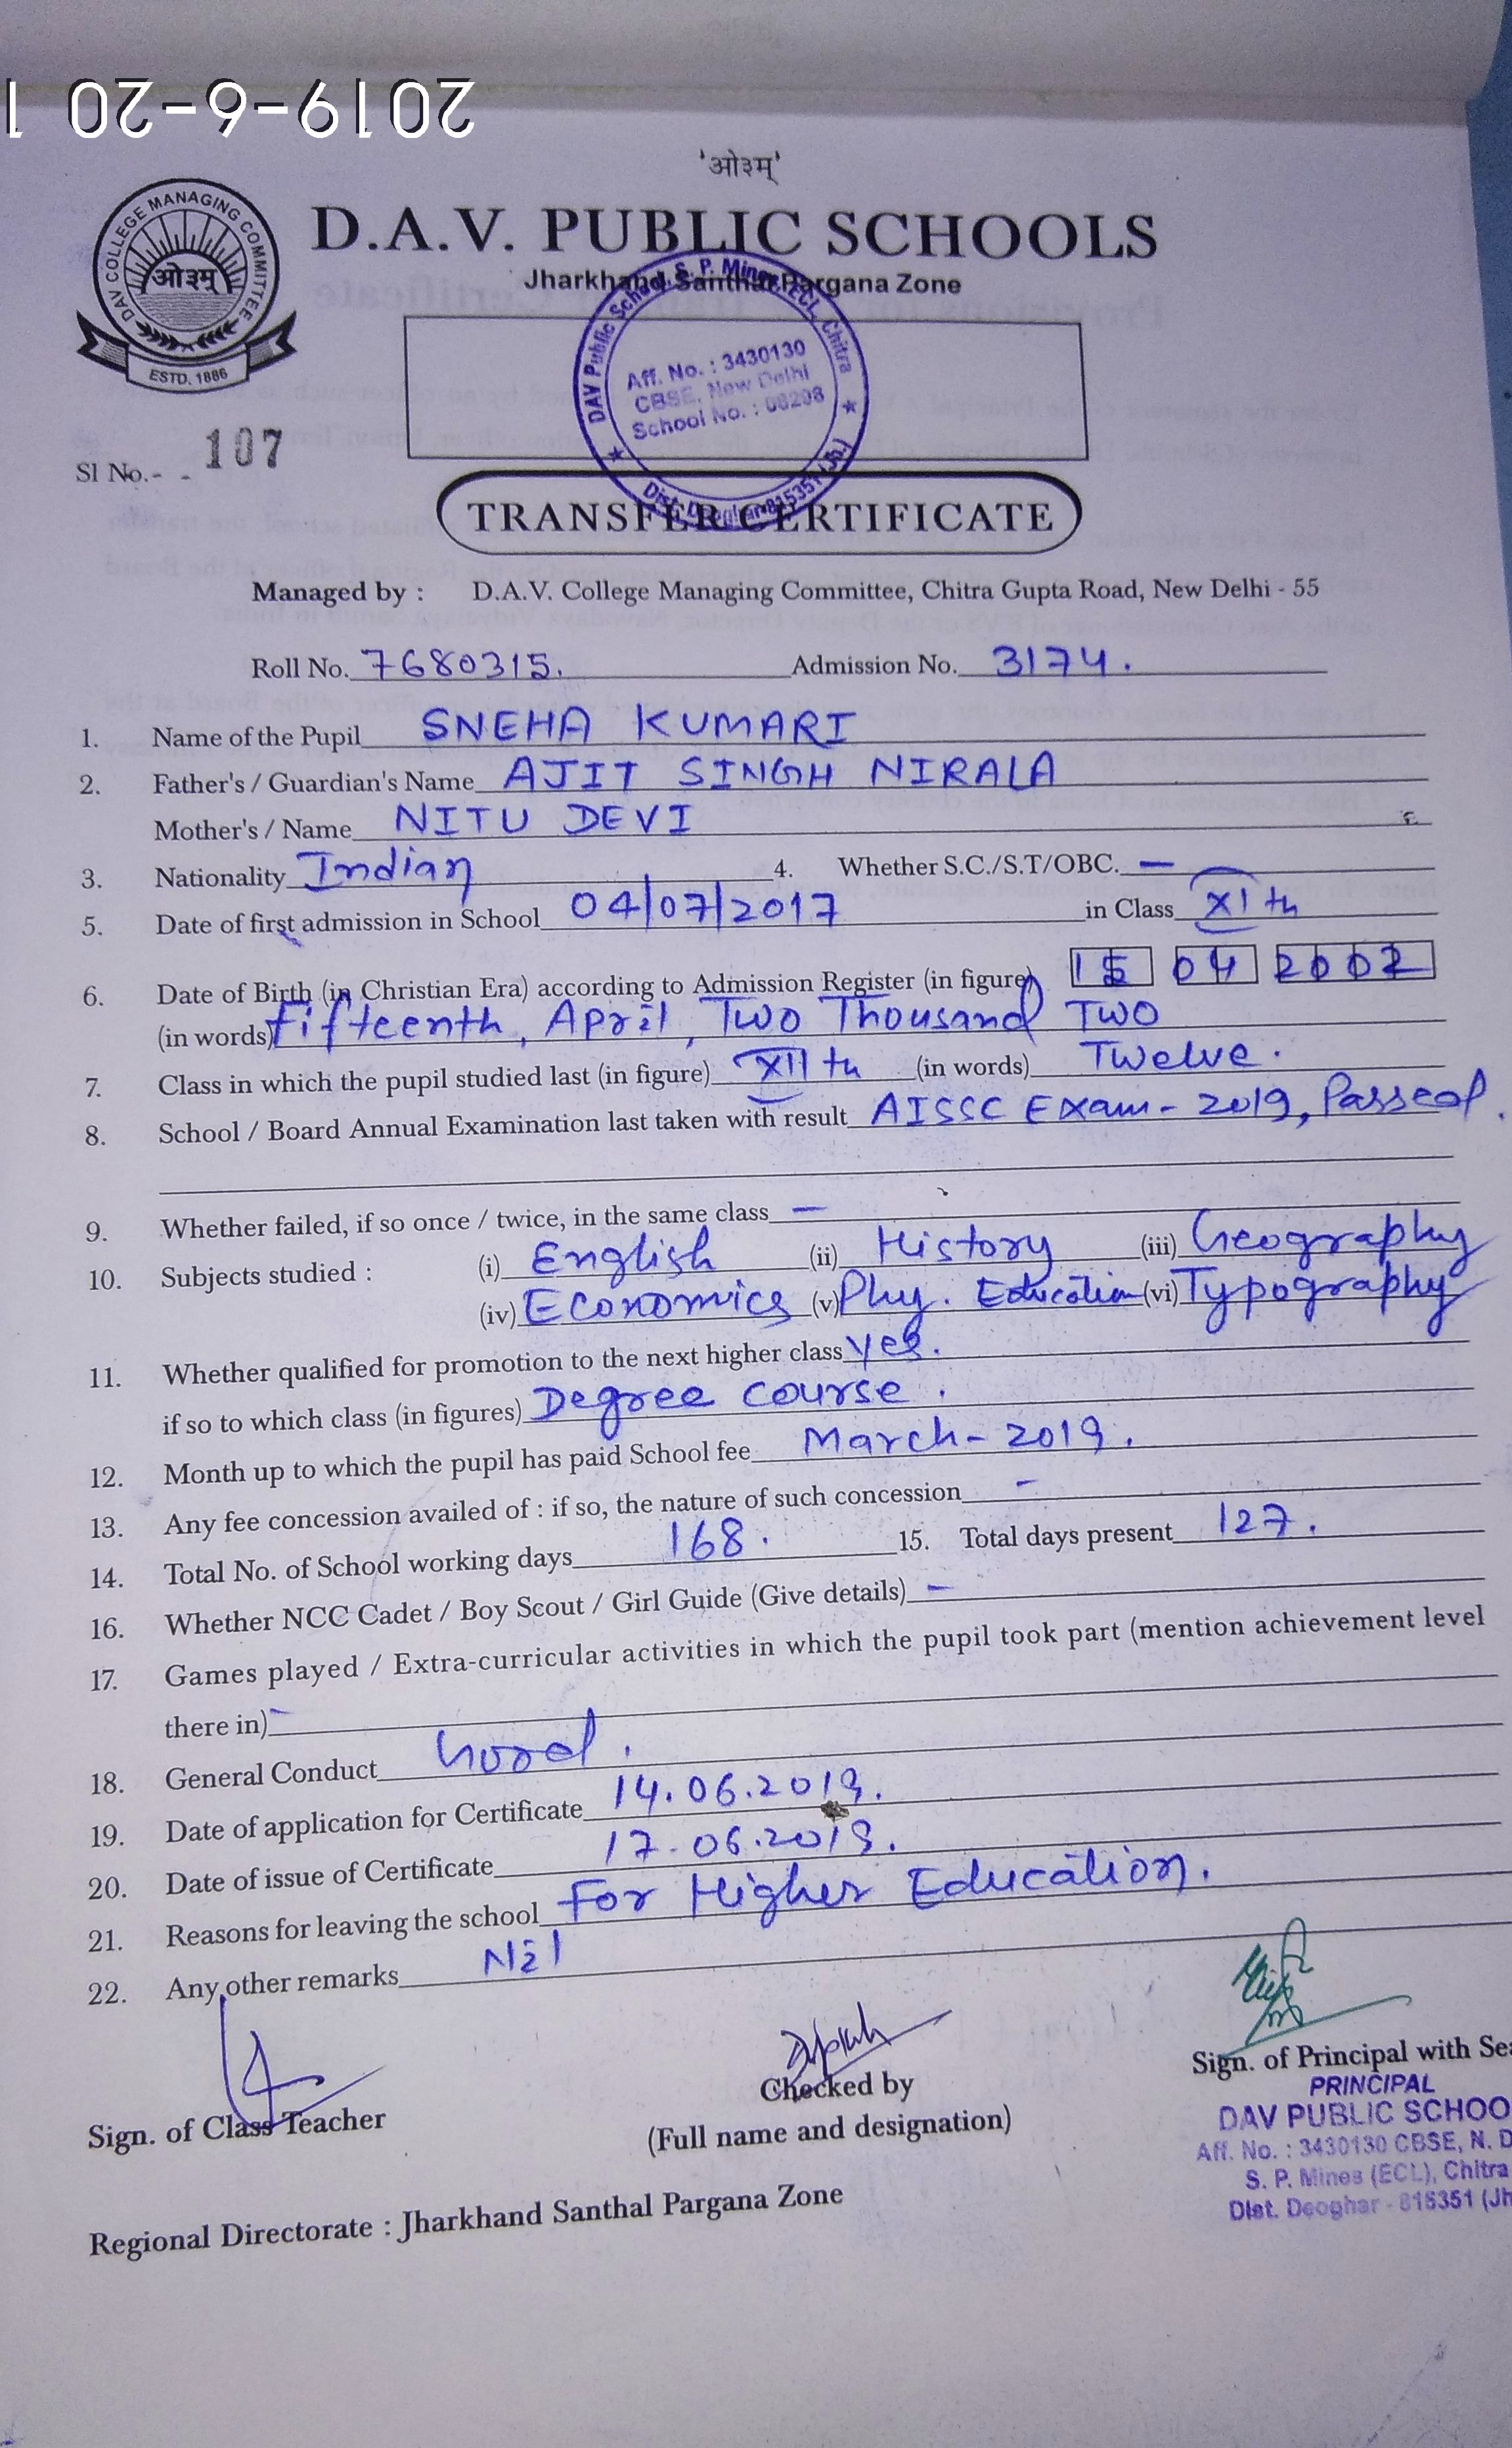 2019-6-20 1
'ओ३म्'
DAV COLLEGE MANAGING COMMITTEE
ओ३म्
ESTD. 1886
D.A.V. PUBLIC SCHOOLS
Jharkhand Santhal Pargana Zone
DAV Public School, S. P. Mines, ECL, Chitra
Aff. No. : 3430130
CBSE, New Delhi
School No. : 08298
Dist. Deoghar-815351 (Jh)
Sl No.- - 107
TRANSFER CERTIFICATE
Managed by : D.A.V. College Managing Committee, Chitra Gupta Road, New Delhi - 55
Roll No. 7680315. Admission No. 3174.
1. Name of the Pupil SNEHA KUMARI
2. Father's / Guardian's Name AJIT SINGH NIRALA
Mother's / Name NITU DEVI
3. Nationality Indian 4. Whether S.C./S.T/OBC. —
5. Date of first admission in School 04/07/2017 in Class XIth
6. Date of Birth (in Christian Era) according to Admission Register (in figure) 15 04 2002
(in words) Fifteenth, April, Two Thousand Two
7. Class in which the pupil studied last (in figure) XIIth (in words) Twelve.
8. School / Board Annual Examination last taken with result AISSC Exam- 2019, Passed.
9. Whether failed, if so once / twice, in the same class —
10. Subjects studied : (i) English (ii) History (iii) Geography
(iv) Economics (v) Phy. Education (vi) Typography
11. Whether qualified for promotion to the next higher class yes.
if so to which class (in figures) Degree course.
12. Month up to which the pupil has paid School fee March- 2019.
13. Any fee concession availed of : if so, the nature of such concession -
14. Total No. of School working days 168. 15. Total days present 127.
16. Whether NCC Cadet / Boy Scout / Girl Guide (Give details) -
17. Games played / Extra-curricular activities in which the pupil took part (mention achievement level
there in) -
18. General Conduct Good.
19. Date of application for Certificate 14.06.2019.
20. Date of issue of Certificate 17.06.2019.
21. Reasons for leaving the school For Higher Education.
22. Any other remarks Nil
Sign. of Class Teacher
Checked by
(Full name and designation)
Sign. of Principal with Sea
PRINCIPAL
DAV PUBLIC SCHOO
Aff. No. : 3430130 CBSE, N. D
S. P. Mines (ECL), Chitra
Dist. Deoghar - 815351 (Jh
Regional Directorate : Jharkhand Santhal Pargana Zone